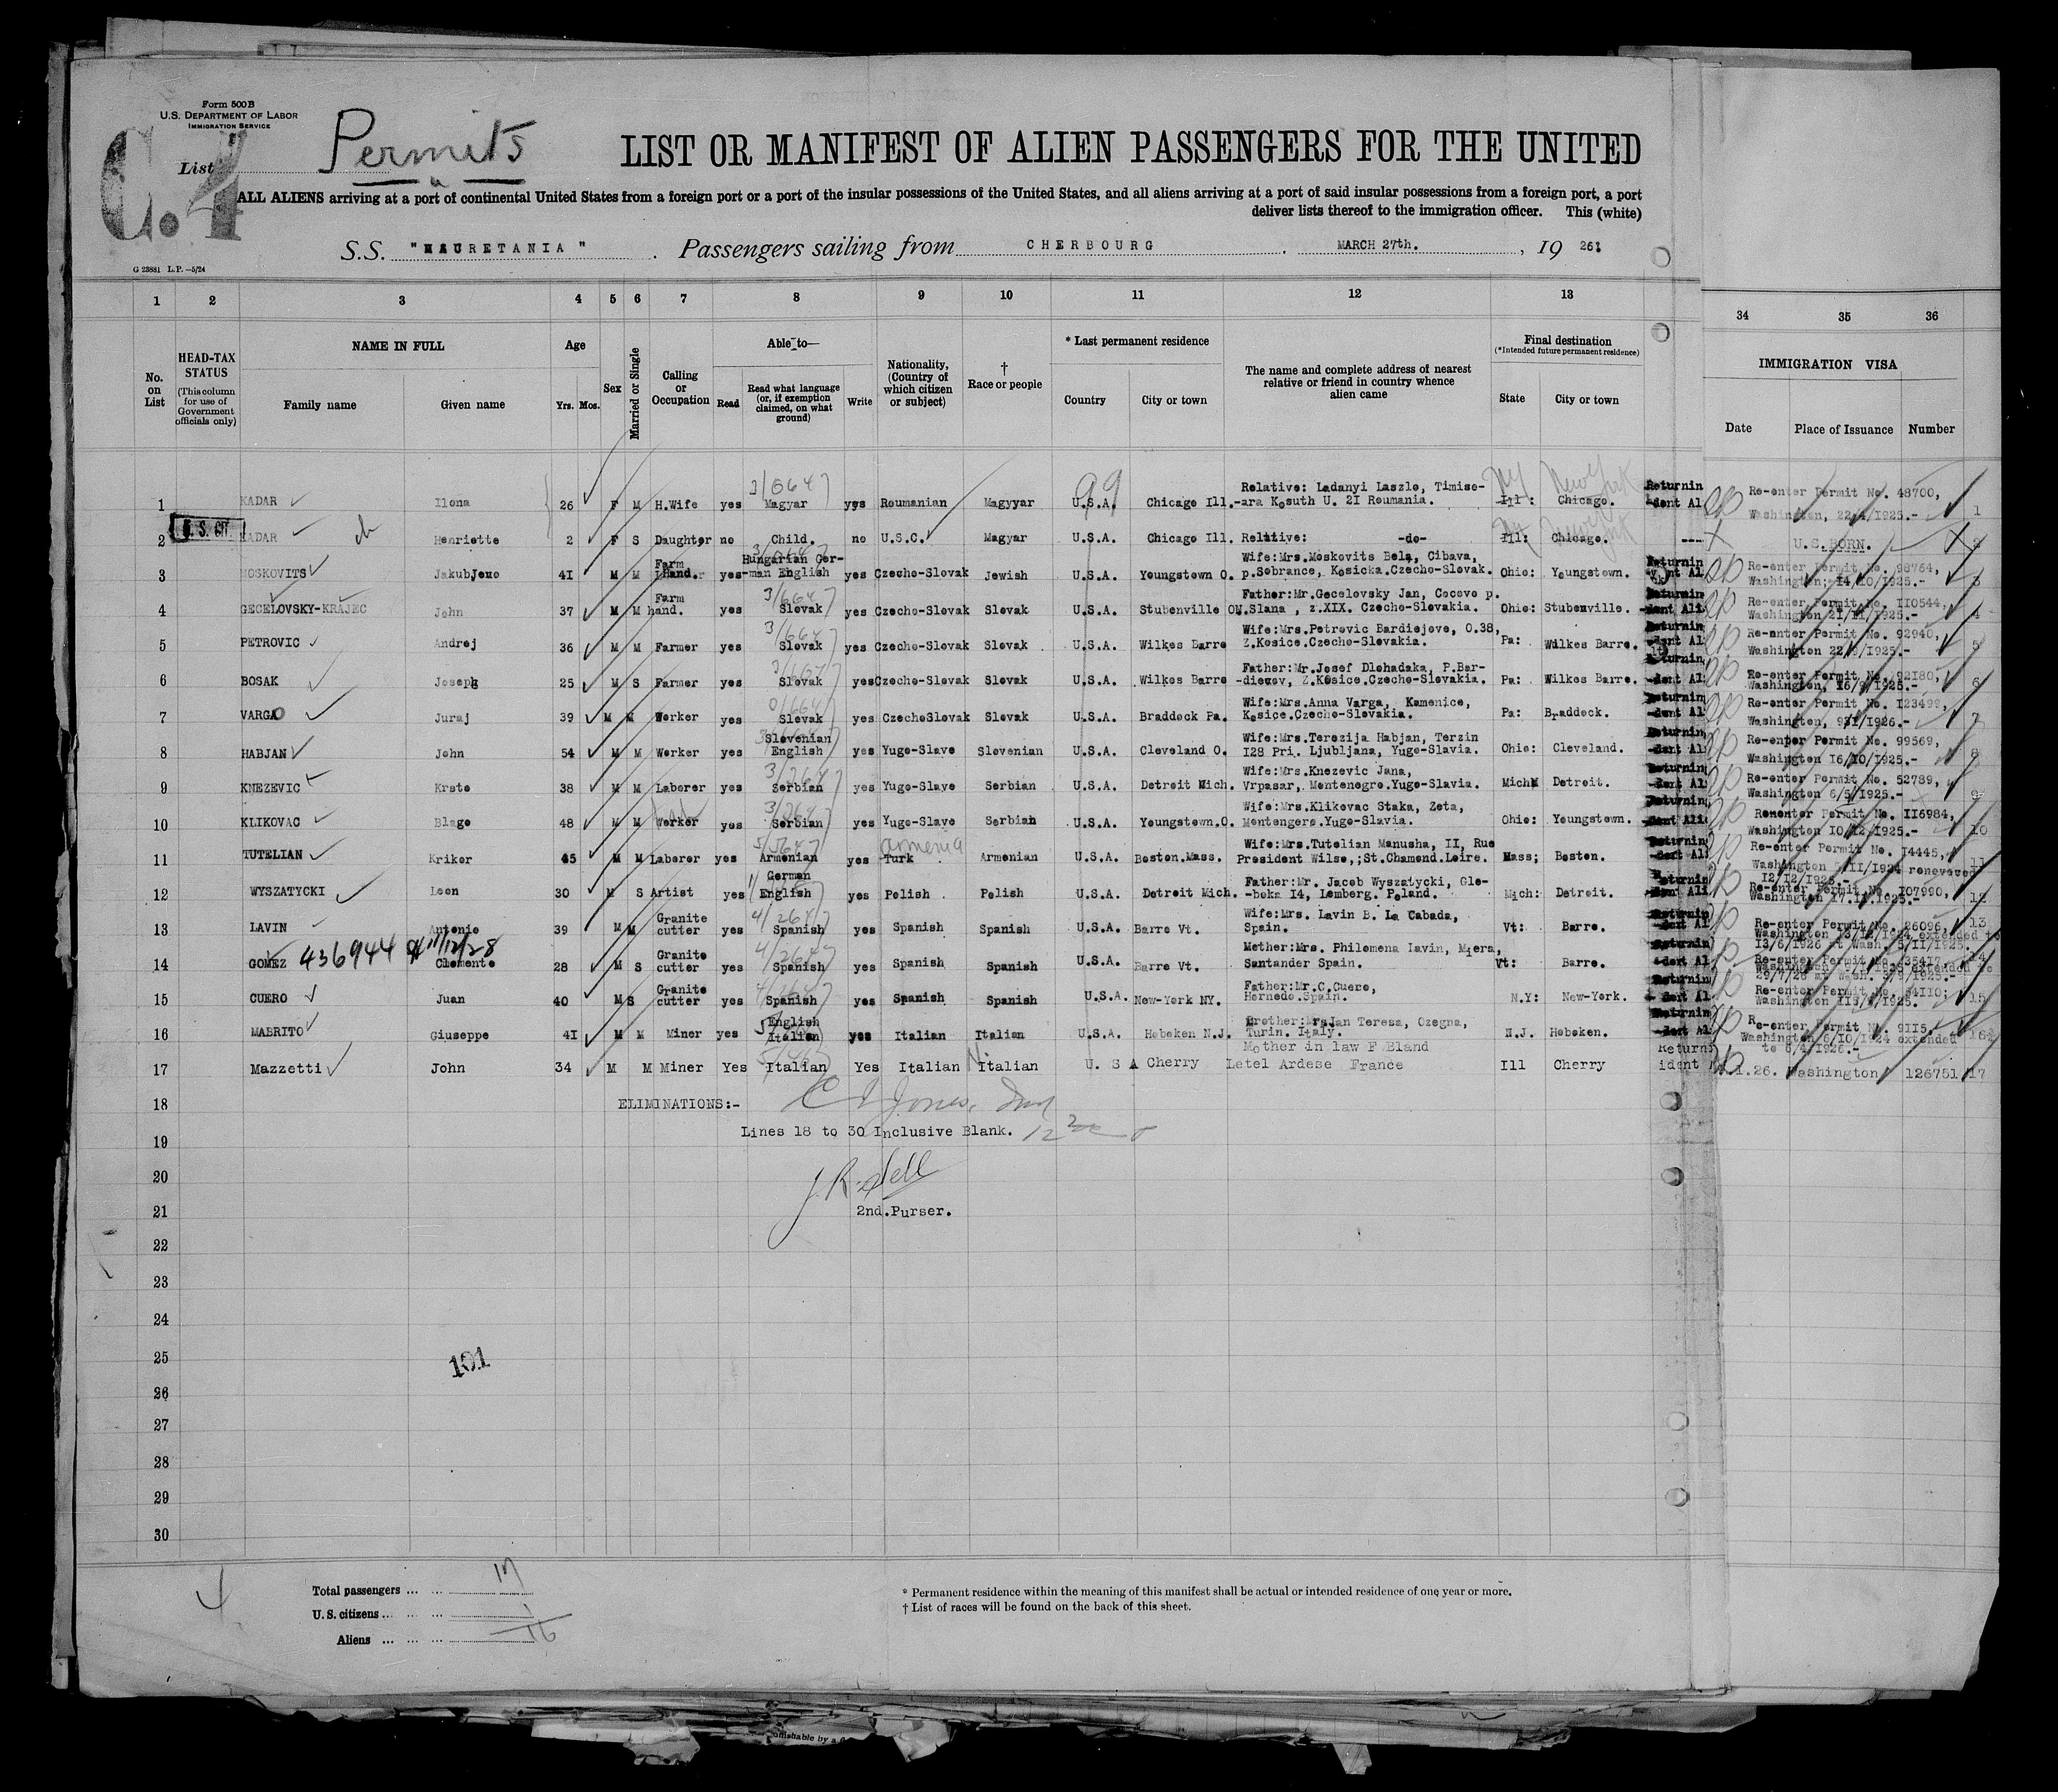 Form 500B
U.S. DEPARTMENT OF LABOR
IMMIGRATION SERVICE
C.4
List
Permits
LIST OR MANIFEST OF ALIEN PASSENGERS FOR THE UNITED
ALL ALIENS arriving at a port of continental United States from a foreign port or a port of the insular possessions of the United States, and all aliens arriving at a port of said insular possessions from a foreign port, a port
deliver lists thereof to the immigration officer. This (white)
S.S. "MAURETANIA" . Passengers sailing from CHERBOURG . MARCH 27th. , 19 26:
G 23881 L.P.—5/24
1 2 3 4 5 6 7 8 9 10 11 12 13 34 35 36
No. on List
HEAD-TAX STATUS (This column for use of Government officials only)
NAME IN FULL Family name Given name
Age Yrs. Mos.
Sex
Married or Single
Calling or Occupation
Able to— Read Read what language (or, if exemption claimed, on what ground) Write
Nationality, (Country of which citizen or subject)
† Race or people
* Last permanent residence Country City or town
The name and complete address of nearest relative or friend in country whence alien came
Final destination (*Intended future permanent residence) State City or town
IMMIGRATION VISA Date Place of Issuance Number
1 KADAR Ilona 26 F M H.Wife yes Magyar yes Roumanian Magyyar U.S.A. Chicago Ill. Relative: Ladanyi Laszlo, Timise--ara Kosuth U. 2I Roumania. Ill: Chicago. NY New York Returnin -dent Al Re-enter Permit No. 48700, Washington, 22/4/I925.- 1
2 U.S. CIT. KADAR Henriette 2 F S Daughter no Child. no U.S.C. Magyar U.S.A. Chicago Ill. Relative: -do- Ill: Chicago. NY New York --- U.S.BORN. 2
3 MOSKOVITS Jakub Jeno 4I M M Farm Hand. yes Hungarian German English yes Czecho-Slovak Jewish U.S.A. Youngstown O. Wife:Mrs.Moskovits Bela, Cibava, p.Sobrance, Kosicka.Czecho-Slovak. Ohio: Youngstown. Re-enter Permit No. 98764, Washington; I4/I0/I925.- 3
4 GECELOVSKY-KRAJEC John 37 M M Farm hand. yes Slovak yes Czecho-Slovak Slovak U.S.A. Stubenville O. Father:Mr.Gecelovsky Jan, Cocovo p. W.Slana , z.XIX. Czecho-Slovakia. Ohio: Stubenville. Re-enter Permit No. II0544, Washington 21/II/I925.- 4
5 PETROVIC Andrej 36 M M Farmer yes Slovak yes Czecho-Slovak Slovak U.S.A. Wilkes Barre Wife:Mrs.Petrovic Bardiejove, O.38, Z.Kosice.Czecho-Slovakia. Pa: Wilkes Barre. Re-enter Permit No. 92940, Washington 22/9/I925.- 5
6 BOSAK Joseph 25 M S Farmer yes Slovak yes Czecho-Slovak Slovak U.S.A. Wilkes Barre Father:Mr.Josef Dlohadaka, P.Bar--dieuov, Z.Kosice.Czecho-Slovakia. Pa: Wilkes Barre. Re-enter Permit No. 92I80, Washington, I6/9/I925.- 6
7 VARGO Juraj 39 M M Worker yes Slovak yes CzechoSlovak Slovak U.S.A. Braddock Pa. Wife:Mrs.Anna Varga, Kamenice, Kosice.Czecho-Slovakia. Pa: Braddock. Re-enter Permit No. I23499, Washington, 93I/I926.- 7
8 HABJAN John 54 M M Worker yes Slovenian English yes Yugo-Slave Slovenian U.S.A. Cleveland O. Wife:Mrs.Terezija Habjan, Terzin I28 Pri. Ljubljana, Yugo-Slavia. Ohio: Cleveland. Re-enter Permit No. 99569, Washington I6/I0/I925.- 8
9 KNEZEVIC Krsto 38 M M Laborer yes Serbian yes Yugo-Slave Serbian U.S.A. Detroit Mich. Wife:Mrs.Knezevic Jana, Vrpasar, Montenegro.Yugo-Slavia. Mich Detroit. Re-enter Permit No. 52789, Washington 6/5/I925.- 9
10 KLIKOVAC Blago 48 M M Worker yes Serbian yes Yugo-Slave Serbian U.S.A. Youngstown.O. Wife:Mrs.Klikovac Staka, Zeta, Montengero.Yugo-Slavia. Ohio: Youngstown. Reenter Permit No. II6984, Washington I0/I2/I925.- 10
11 TUTELIAN Kriker 45 M M Laborer yes Armenian yes Turk Armenia Armenian U.S.A. Boston.Mass. Wife:Mrs.Tutelian Manusha, II, Rue President Wilso,;St.Chamond.Loire. Mass; Boston. Re-enter Permit No. I4445, Washington 5/II/I924 reneveved I2/I2/I925.- 11
12 WYSZATYCKI Leon 30 M S Artist yes German English yes Polish Polish U.S.A. Detroit Mich. Father:Mr. Jacob Wyszatycki, Gle--boka I4, Lemberg. Poland. Mich: Detroit. Re-enter Permit No. I07990, Washington I7.II.I925.- 12
13 LAVIN Antonio 39 M M Granite cutter yes Spanish yes Spanish Spanish U.S.A. Barre Vt. Wife:Mrs. Lavin B. La Cabada, Spain. Vt: Barre. Re-enter Permit No. 26096, extended to I3/6/I926 at Wash. 5/II/I925. 13
14 GOMEZ 436944 11/12/28 Clemente 28 M S Granite cutter yes Spanish yes Spanish Spanish U.S.A. Barre Vt. Mother:Mrs. Philomena Lavin, Miera, Santander Spain. Vt: Barre. Re-enter Permit No. 35417, extended to 14
15 CUERO Juan 40 M S Granite cutter yes Spanish yes Spanish Spanish U.S.A. New-York NY. Father:Mr.C.Cuero, Hornedo.Spain. N.Y: New-York. Re-enter Permit No. 15
16 MABRITO Giuseppe 4I M M Miner yes English Italian yes Italian Italian U.S.A. Hoboken N.J. Brother:MrsJan Teresa, Ozegna, Turin. Italy. N.J. Hoboken. Re-enter Permit No. 9II5, Washington 6/I0/I924 extended to 6/4/I926.- 16
17 Mazzetti John 34 M M Miner Yes Italian Yes Italian N. Italian U. S A Cherry Mother in law F Bland Letel Ardese France Ill Cherry Returni ident 1.26. Washington 126751 17
18 ELIMINATIONS:-
19 Lines 18 to 30 Inclusive Blank.
20
21 2nd.Purser.
22
23
24
25 101
26
27
28
29
30
Total passengers ... ... ... 17
U. S. citizens ... ... ... 1
Aliens ... ... ... 16
* Permanent residence within the meaning of this manifest shall be actual or intended residence of one year or more.
† List of races will be found on the back of this sheet.